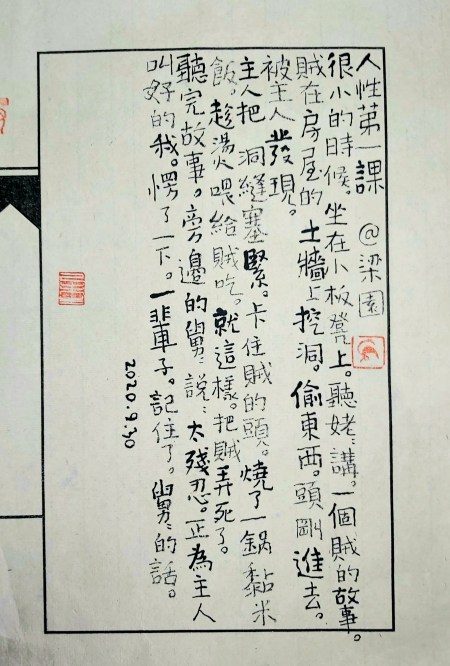 人性第一課 @梁園
很小的時候。坐在小板凳上。聽姥〻講。一個賊的故事。
賊在房屋的土牆上挖洞。偷東西。頭剛進去。
被主人發現。
主人把洞縫塞緊。卡住賊的頭。燒了一鍋黏米
飯。趁燙喂給賊吃。就這樣。把賊弄死了。
聽完故事。旁邊的舅〻說：太殘忍。正為主人
叫好的我。愣了一下。一輩子。記住了。舅〻的話。
2020.9.30